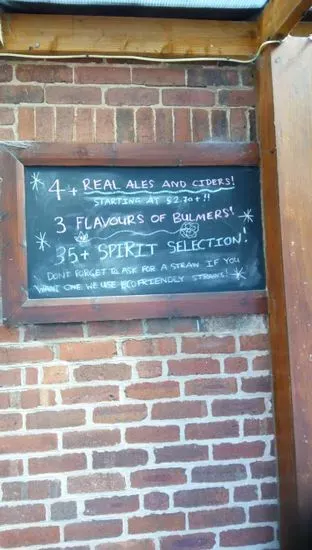 4+ REAL ALES AND CIDERS!
STARTING AT £2.70+!!
3 FLAVOURS OF BULMERS!
35+ SPIRIT SELECTION!
DONT FORGET TO ASK FOR A STRAW IF YOU
WANT ONE WE USE ECO FRIENDLY STRAWS!